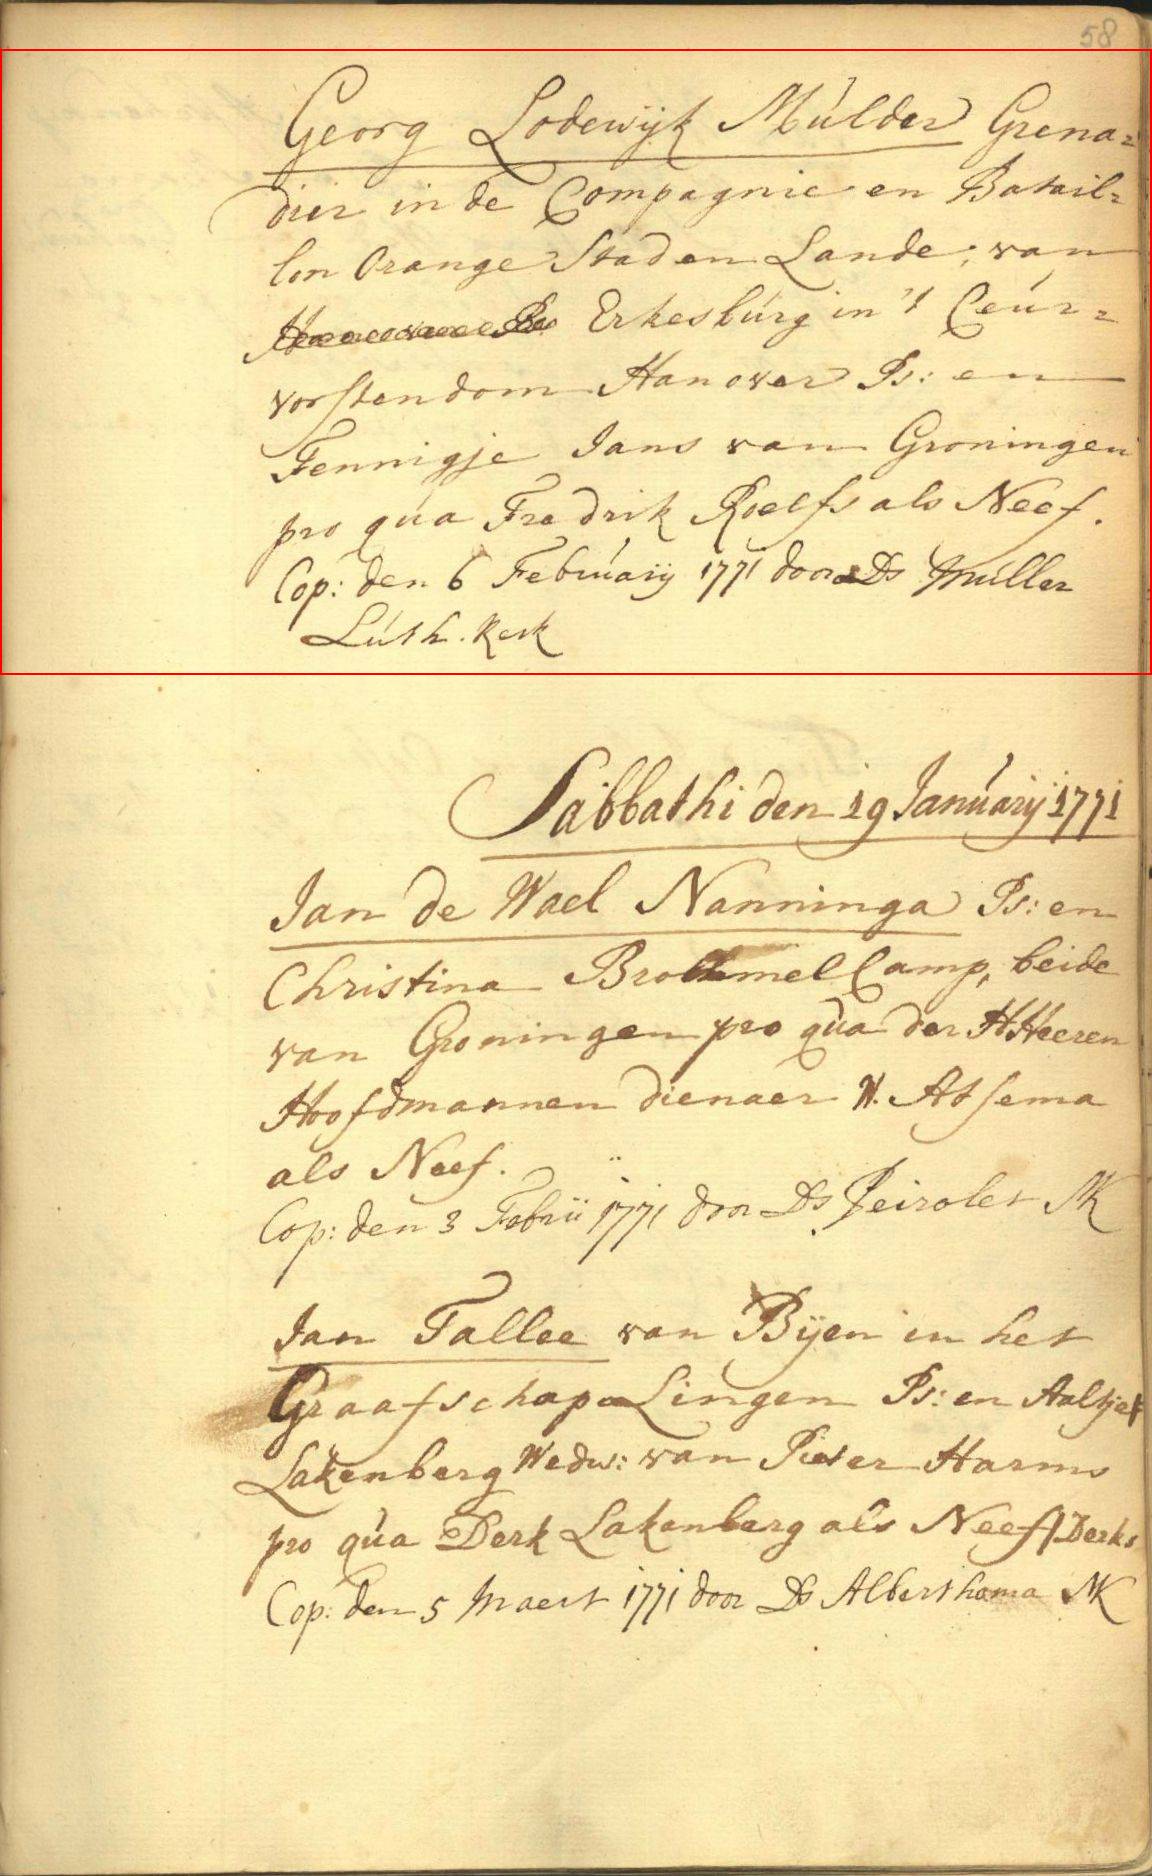 58
Georg Lodewijk Mulder Grena=
dier in de Compagnie en Batail=
lon Orange Stad en Lande, van
Erkesburg in 't Ceur=
vorstendom Hanover Ps: en
Fennigje Jans van Groningen
pro qua Fredrik Roelfs als Neef.
Cop: den 6 February 1771 door Ds Muller
Luth. Kerk
Sabbathi den 19 January 1771
Jan de Wael Nanninga Ps: en
Christina Brommelcamp, beide
van Groningen pro qua der HHeeren
Hoofdmannen dienaer W. Atsema
als Neef.
Cop: den 3 Febrii 1771 door Ds Peirolet NK
Jan Tallee van Bijen in het
Graafschap Lingen Ps: en Aaltjet
Lakenberg Wedw: van Pieter Harms
pro qua Derk Lakenberg als Neef / Derks
Cop: den 5 Maert 1771 door Ds Alberthoma NK